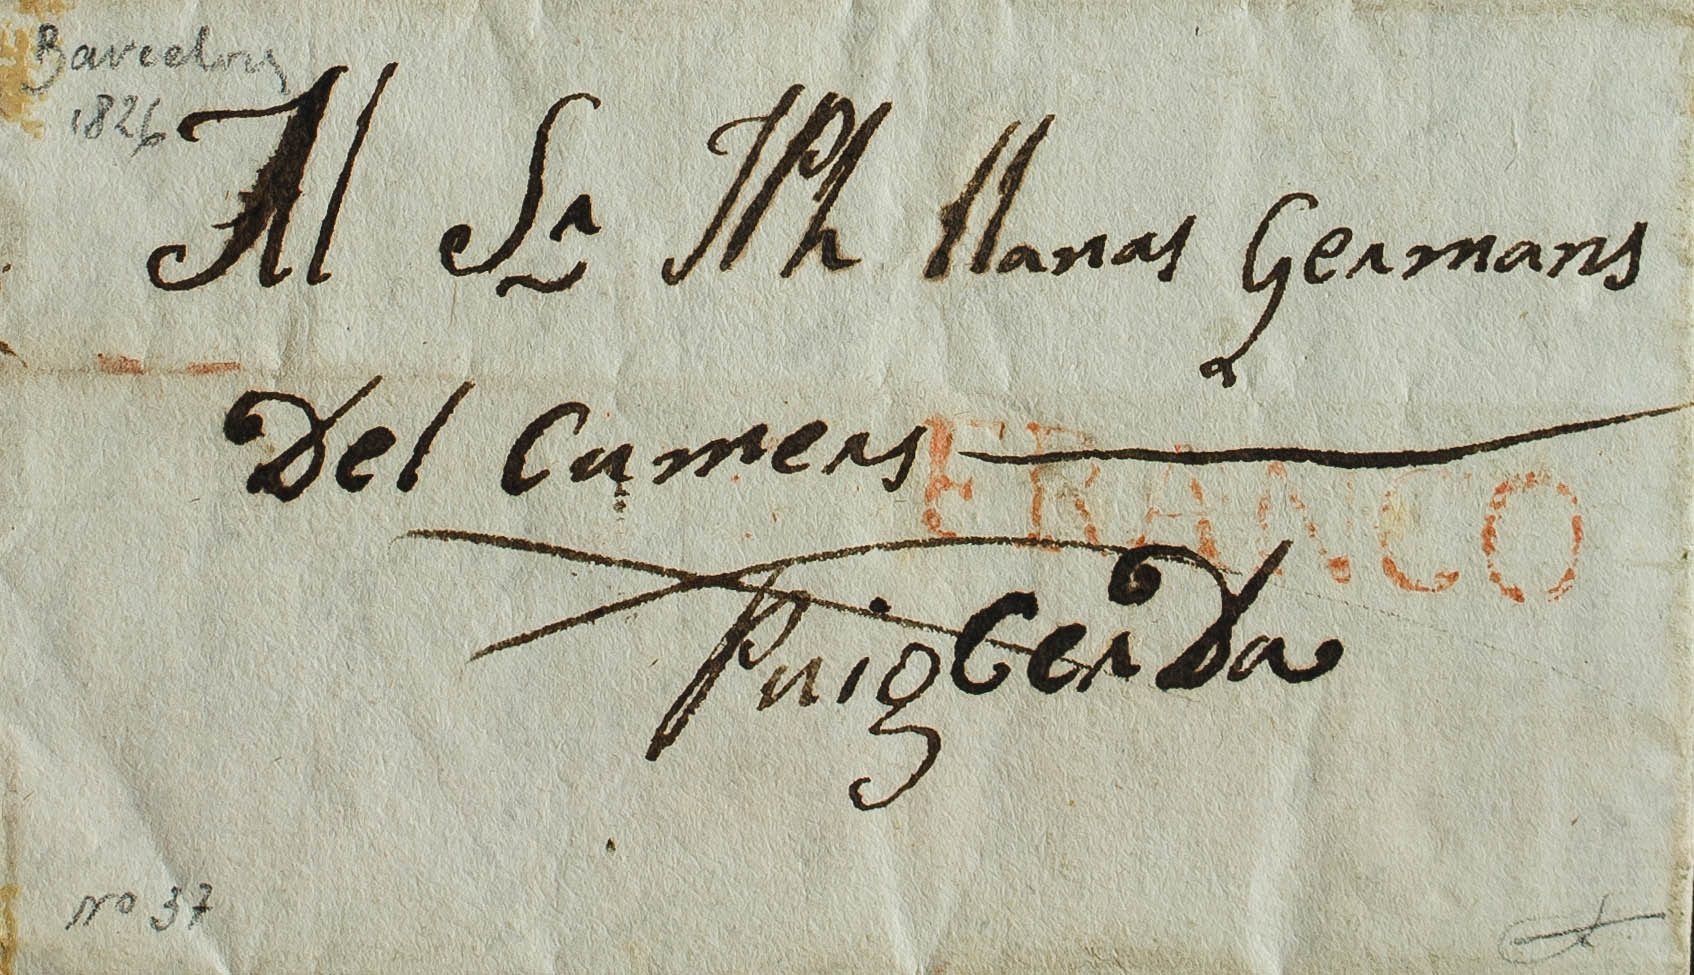 Barcelona
1826
Al Sr JPh llanas Germans
Del Cumers
FRANCO
PuigCerDa
no 37